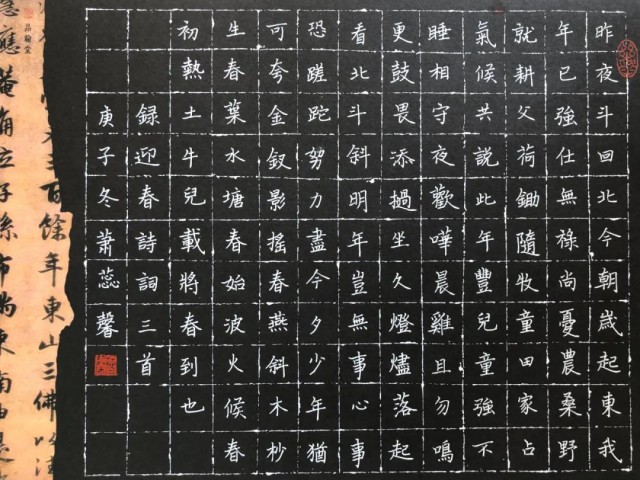 昨夜斗回北今朝歲起東我
年已強仕無祿尚憂農桑野
就耕父荷鋤隨牧童田家占
氣候共說此年豐兒童強不
睡相守夜歡嘩晨雞且勿鳴
更鼓畏添撾坐久燈燼落起
看北斗斜明年豈無事心事
恐蹉跎努力盡今夕少年猶
可夸金釵影搖春燕斜木杪
生春葉水塘春始波火候春
初熱土牛兒載將春到也
録迎春詩詞三首
庚子冬蕭蕊馨
百餘年東山三佛
品翰堂
應菴角立子孫布為東南